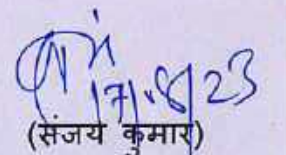 17.8/23
(संजय कुमार)